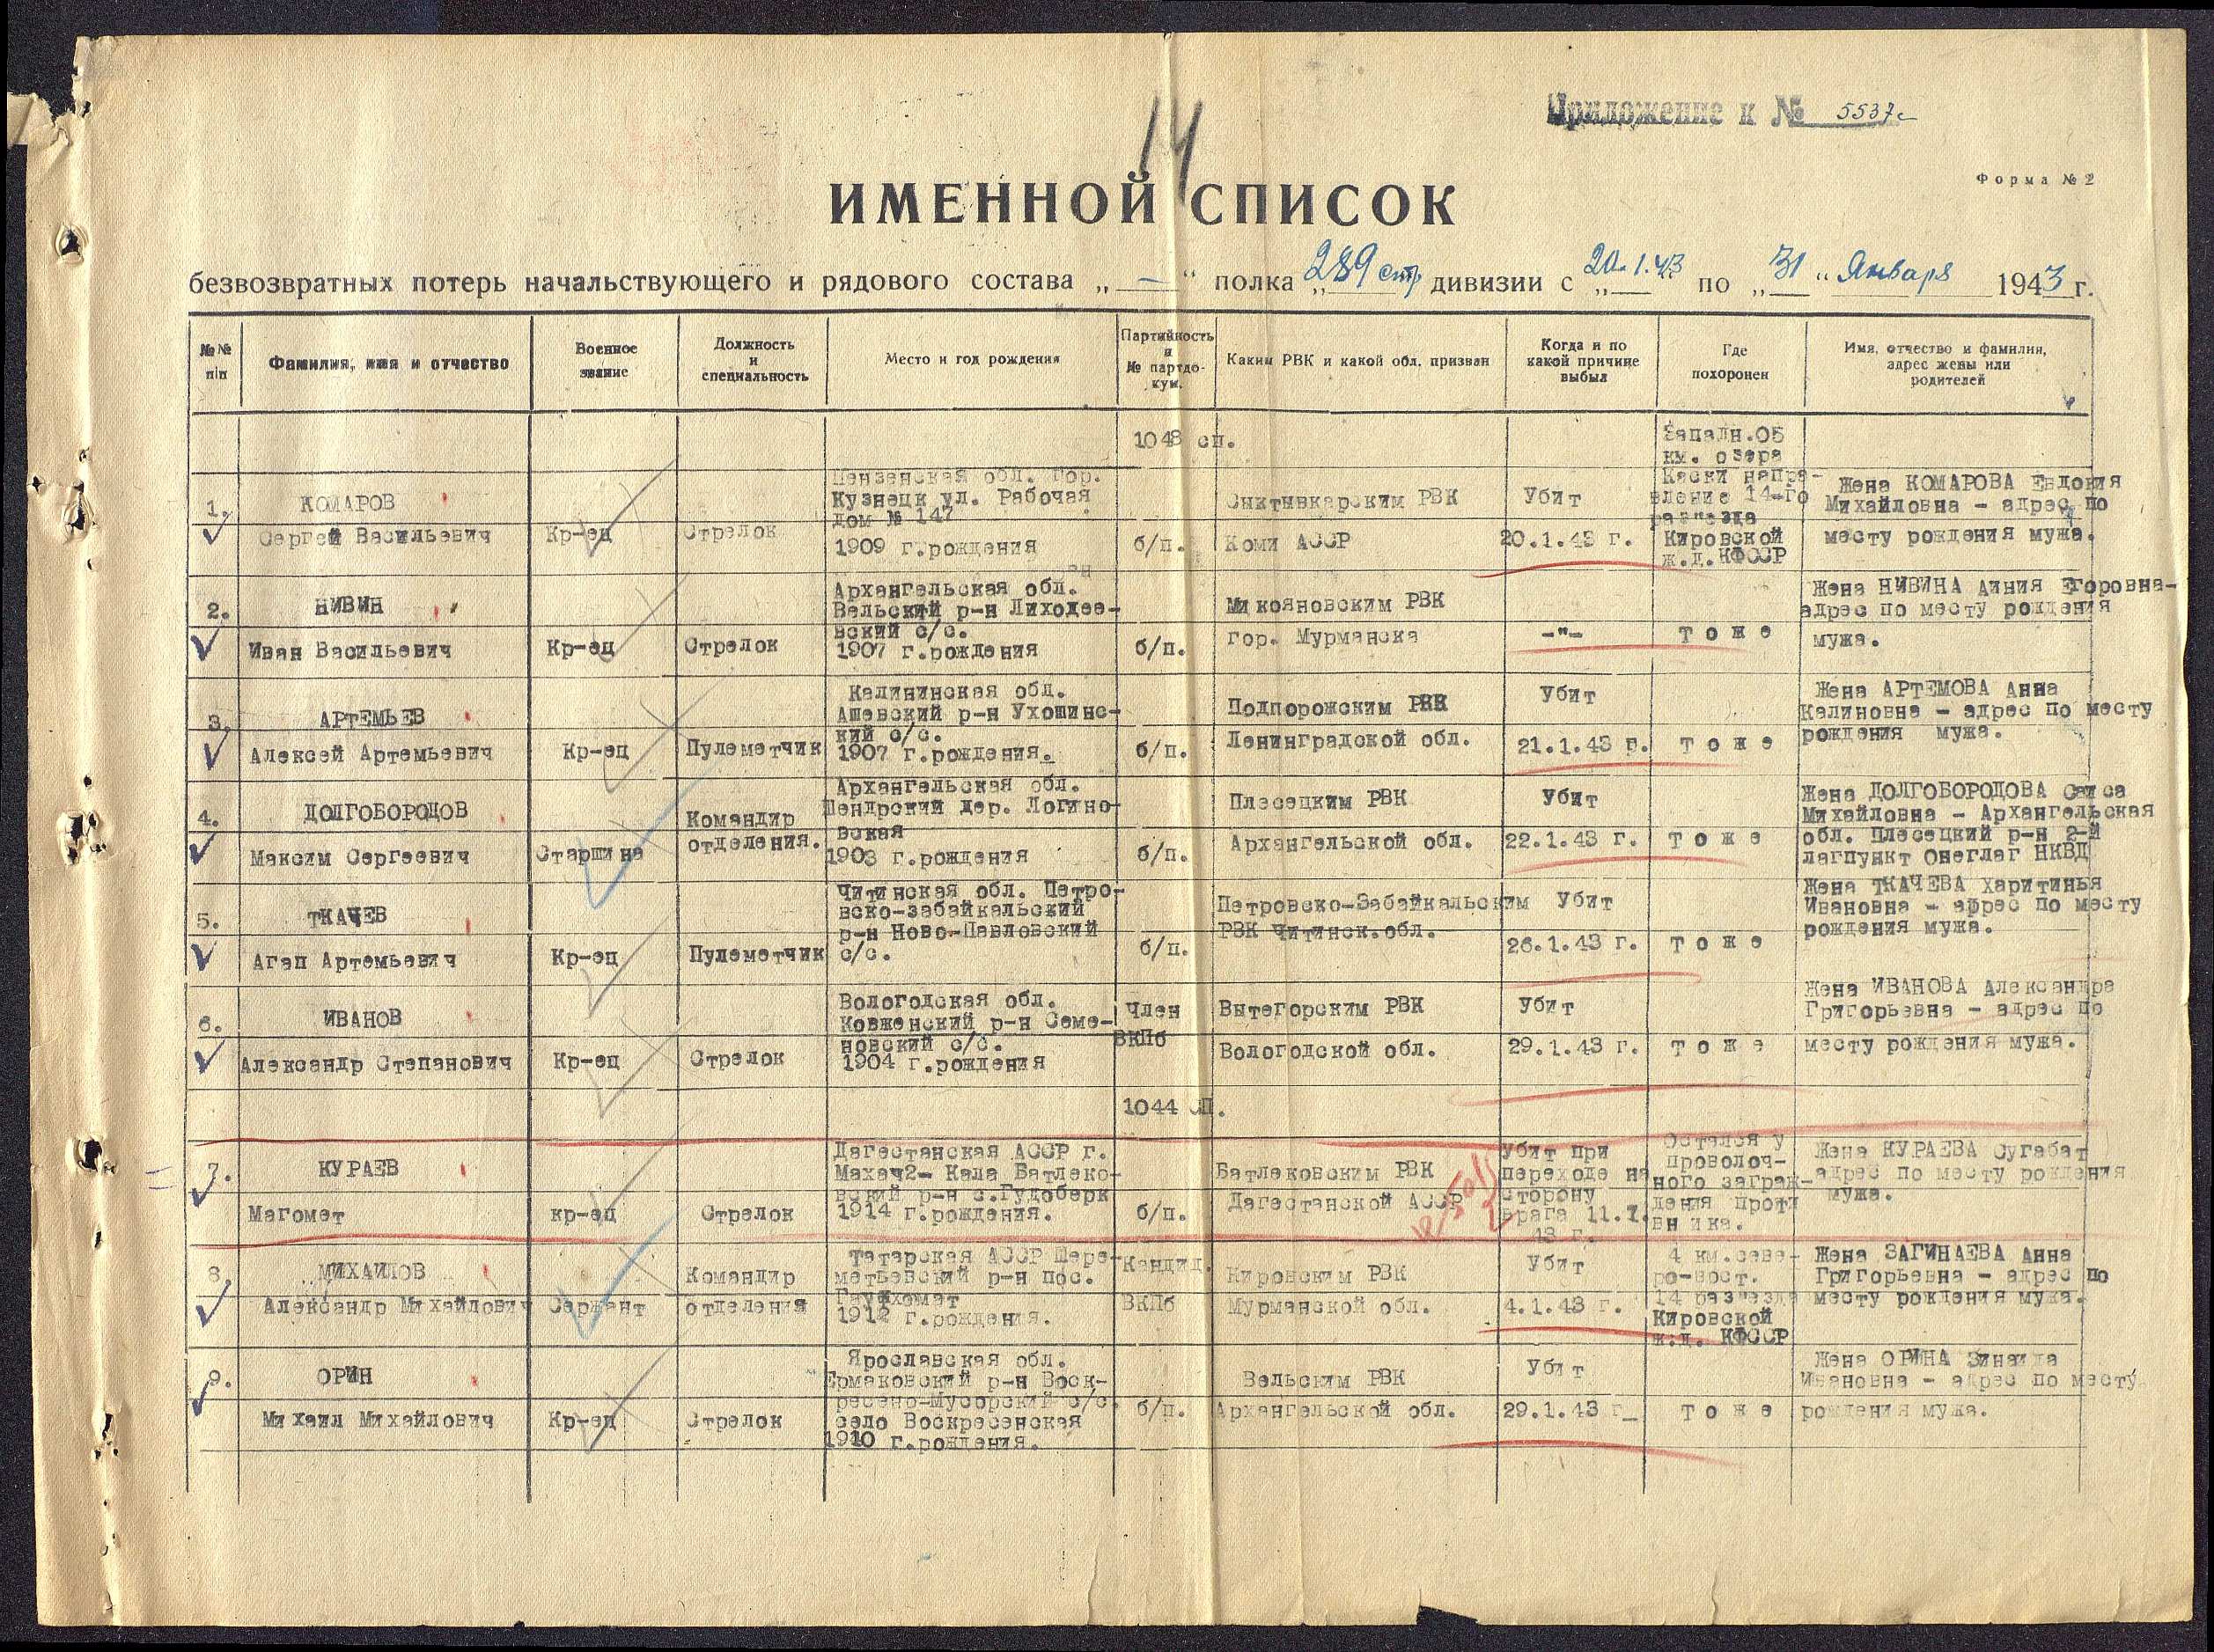 14
Приложение к № 5537с
Форма № 2
ИМЕННОЙ СПИСОК
безвозвратных потерь начальствующего и рядового состава „ — “ полка „ 289 стр дивизии с „ 20.1.43 по „ 31 “ Января 1943 г.
№№ п/п
Фамилия, имя и отчество
Военное звание
Должность и специальность
Место и год рождения
Партийность и № партдокум.
Каким РВК и какой обл. призван
Когда и по какой причине выбыл
Где похоронен
Имя, отчество и фамилия, адрес жены или родителей
1048 сп.
1.
КОМАРОВ
Сергей Васильевич
Кр-ец
Стрелок
Пензенская обл. Гор.
Кузнецк ул. Рабочая
дом № 147
1909 г.рождения
б/п.
Сыктывкарским РВК
Коми АССР
Убит
20.1.43 г.
Западн.05
км. озера
Каски напра-
вление 14-го
раз"езда
Кировской
ж.д. КФССР
Жена КОМАРОВА Евдокия
Михайловна - адрес по
месту рождения мужа.
2.
НИВИН
Иван Васильевич
Кр-ец
Стрелок
Архангельская обл.
Вельский р-н Лиходее-
вский с/с.
1907 г.рождения
б/п.
Микояновским РВК
гор. Мурманска
-"-
тоже
Жена НИВИНА Линия Егоровна-
адрес по месту рождения
мужа.
3.
АРТЕМЬЕВ
Алексей Артемьевич
Кр-ец
Пулеметчик
Калининская обл.
Ашевский р-н Ухошинс-
кий с/с.
1907 г.рождения.
б/п.
Подпорожским РВК
Ленинградской обл.
Убит
21.1.43 г.
тоже
Жена АРТЕМОВА Анна
Калиновна - адрес по месту
рождения мужа.
4.
ДОЛГОБОРОДОВ
Максим Сергеевич
Старшина
Командир
отделения.
Архангельская обл.
Шендрский дер. Логино-
вская
1903 г.рождения
б/п.
Плесецким РВК
Архангельской обл.
Убит
22.1.43 г.
тоже
Жена ДОЛГОБОРОДОВА
Михайловна - Архангельская
обл. Плесецкий р-н 2-й
лагпункт Онеглаг НКВД
5.
ТКАЧЕВ
Агап Артемьевич
Кр-ец
Пулеметчик
Читинская обл. Петро-
вско-забайкальский
р-н Ново-Павловский
с/с.
б/п.
Петровско-Забайкальским
РВК Читинск.обл.
Убит
26.1.43 г.
тоже
Жена ТКАЧЕВА Харитинья
Ивановна - адрес по месту
рождения мужа.
6.
ИВАНОВ
Александр Степанович
Кр-ец
Стрелок
Вологодская обл.
Ковженский р-н Семе-
новский с/с.
1904 г.рождения
Член
ВКПб
Вытегорским РВК
Вологодской обл.
Убит
29.1.43 г.
тоже
Жена ИВАНОВА Александра
Григорьевна - адрес по
месту рождения мужа.
1044 СП.
7.
КУРАЕВ
Магомет
кр-ец
Стрелок
Дагестанская АССР г.
Махач2- Кала Батлеко-
вский р-н с.Гудоберк
1914 г.рождения.
б/п.
Батлековским РВК
Дагестанской АССР
Убит при
переходе на
сторону
врага 11.1.
43 г.
Остался у
проволоч-
ного заграж-
дения проти
вника.
Жена КУРАЕВА Сугабат
адрес по месту рождения
мужа.
8.
МИХАЙЛОВ
Александр Михайлович
Сержант
Командир
отделения
Татарская АССР Шере-
метьевский р-н пос.
1912 г.рождения.
Кандид.
ВКПб
Кировским РВК
Мурманской обл.
Убит
4.1.43 г.
4 км.севе-
ро-вост.
14 раз"езда
Кировской
ж.д. КФССР
Жена ЗАГИНАЕВА Анна
Григорьевна - адрес по
месту рождения мужа.
9.
ОРИН
Михаил Михайлович
Кр-ец
Стрелок
Ярославская обл.
Ермаковский р-н Воск-
ресено-Мусорский с/с.
село Воскресенская
1910 г.рождения.
б/п.
Вельским РВК
Архангельской обл.
Убит
29.1.43 г_
тоже
Жена ОРИНА Зинаида
Ивановна - адрес по месту
рождения мужа.